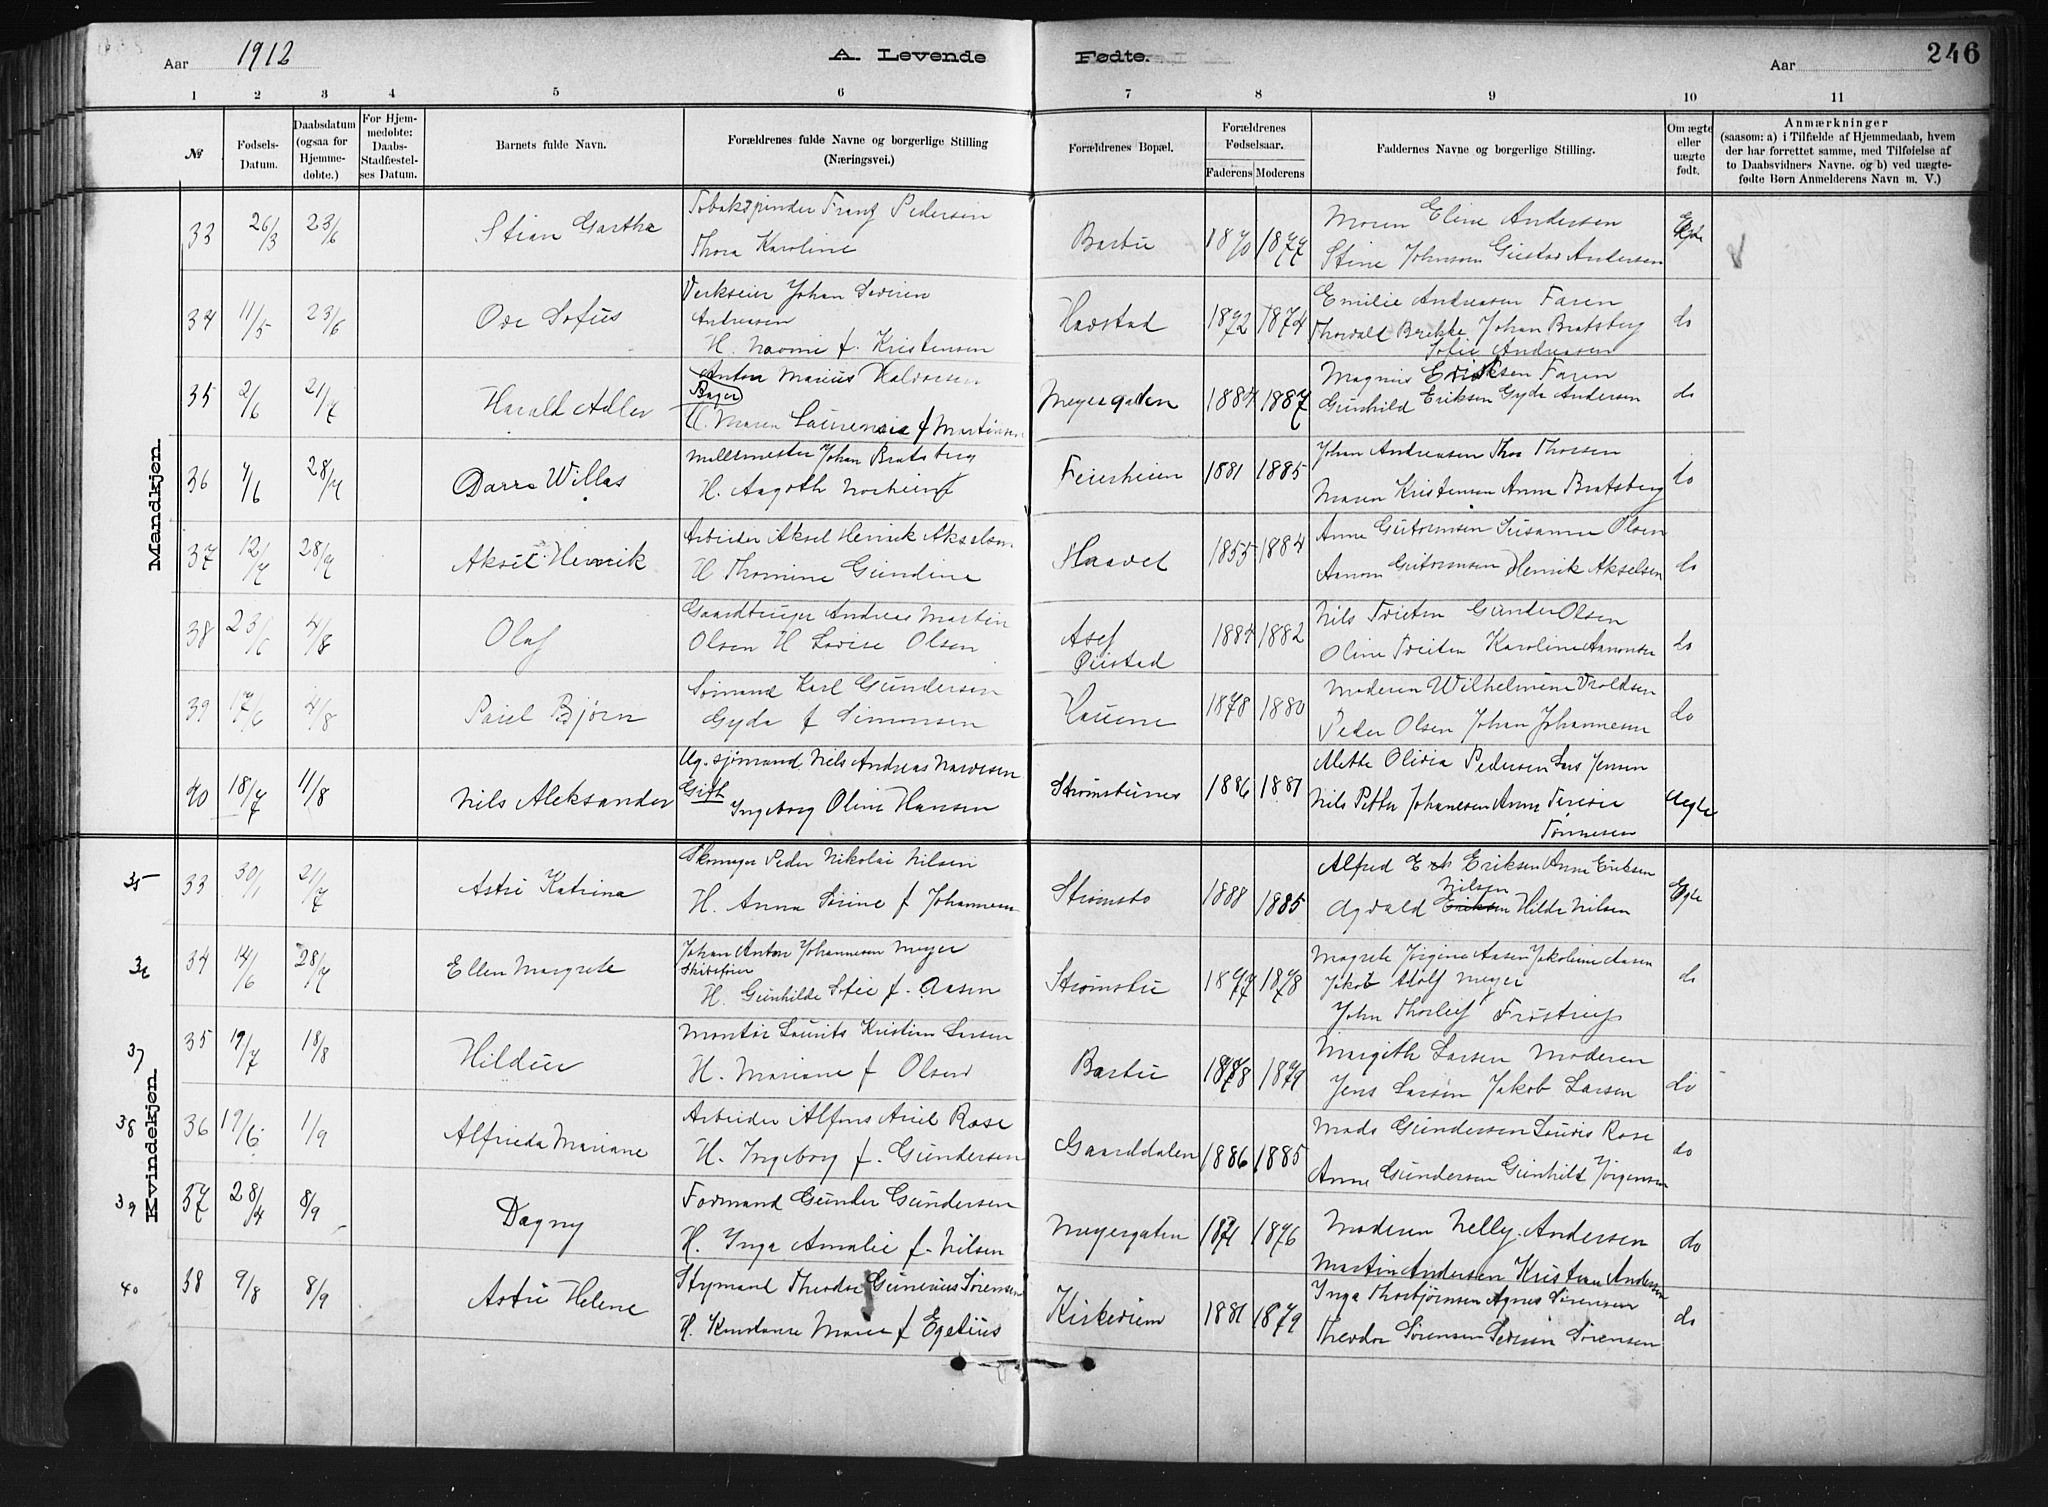 Aar 1912
A. Levende Fødte.
Aar
246
1 2 3 4 5 6 7 8 9 10 11
№
Fødsels-Datum.
Daabsdatum (ogsaa for Hjemmedøbte.)
For Hjemmedøbte: Daabs-Stadfæstelses Datum.
Barnets fulde Navn.
Forældrenes fulde Navne og borgerlige Stilling
(Næringsvei.)
Forældrenes Bopæl.
Forældrenes Fødselsaar.
Faderens Moderens
Faddernes Navne og borgerlige Stilling.
Om ægte eller uægte født.
Anmærkninger
(saasom: a) i Tilfælde af Hjemmedaab, hvem
der har forrettet samme, med Tilføielse af
to Daabsvidners Navne. og b) ved uægte-
fødte Børn Anmelderens Navn m. V.)
Mandkjøn
33 26/3 23/6 Stian Garthe
Tobakspinder Franz Pedersen
Thora Karoline
Barbu 1870 1877
Moren Eline Andersen
Stine Johnsen Gustav Andersen
Egte
34 11/5 23/6 Ove Sofus
Verkseier Johan Severin
Andreasen
H. Naomi f. Kristensen
Havstad 1872 1874
Emilie Andreasen Faren
Thorvald Brekke Johan Bratsberg
Sofie Andreasen
do
35 2/6 21/7 Harald Adler
Anton Marius Halvorsen
Bager
H. Maren Laurensie f Martinsen
Meyergaten 1884 1887
Magnus Eriksen Faren
Gunhild Eriksen Gyda Andersen
do
36 7/6 28/7 Willas
Møllermester Johan Bratsberg
H. Aagoth
Feierheien 1881 1885
Johan Andreasen Thea Thorsen
Maren Kristensen Anna Bratsberg
do
37 12/7 28/7 Aksel Henrik
Arbeider Aksel Henrik Akselsen
H Thomine Gundine
Haavet 1855 1884
Anne Guttormsen Susanne Olsen
Aanon Guttormsen Henrik Akselsen
do
38 23/6 4/8 Olaf
Gaardbruger Andreas Martin
Olsen H Lovise Olsen
Øiestad 1884 1882
Nils Treiten Gunder Olsen
Oline Treiten Karoline Aanonsen
do
39 17/6 4/8 Paul Bjørn
Sømand Karl Gundersen
Gyda f Simonsen
Hauene 1878 1880
Moderen Wilhelmine Vroldsen
Peder Olsen Johan Johannesen
do
40 18/7 11/8 Nils Aleksander
Ug. sjømand Nils Andreas Narvesen
Gift
Ingeborg Oline Hansen
Strømsbunes 1886 1881
Mette Olivia Pedersen Lars Jensen
Nils Petter Johanesen Anne Teresie
Tønnesen
Uegte
Kvindekjøn
35 33 30/1 21/7 Astri Katrina
Skomager Peder Nikolai Nilsen
H. Anna Sørine f Johannesen
Strømsbo 1888 1885
Alfred Eriksen Anna Eriksen
Nilsen
Agvald Eriksen Hilda Nilsen
Egte
36 34 14/6 28/7 Ellen Margrete
Johan Anton Johannesen Meyer
Skibsfører
H. Gunhilde Sofie f. Aasen
Strømsbu 1877 1878
Magrete Jørgine Aasen Jakobine Aasen
Jakob Adolf Meyer
John Thorleif Frøstrup
do
37 35 19/7 18/8 Hildur
Montør Laurits Kristian Larsen
H. Mariane f Olsen
Barbu 1878 1879
Margith Larsen Moderen
Jens Larsen Jakob Larsen
do
38 36 17/6 1/9 Alfrida Mariane
Arbeider Alfons Ariel Rose
H. Ingeborg f. Gundersen
Gaarddalen 1886 1885
Mads Gundersen Louis Rose
Anne Gundersen Gunhild Jørgensen
do
39 37 28/4 8/9 Dagny
Formand Gunder Gundersen
H. Inga Amalie f. Nilsen
Meyergaten 1871 1876
Moderen Nelly Andersen
Martin Andersen Kristian Andersen
do
40 38 9/8 8/9 Astri Helene
Styrmand Theodor Gunerius Sørensen
H. Konstanse Marie f Egelius
Kirkeveien 1881 1879
Inga Thorbjørnsen Agnes Sørensen
Theodor Sørensen Severin Sørensen
do